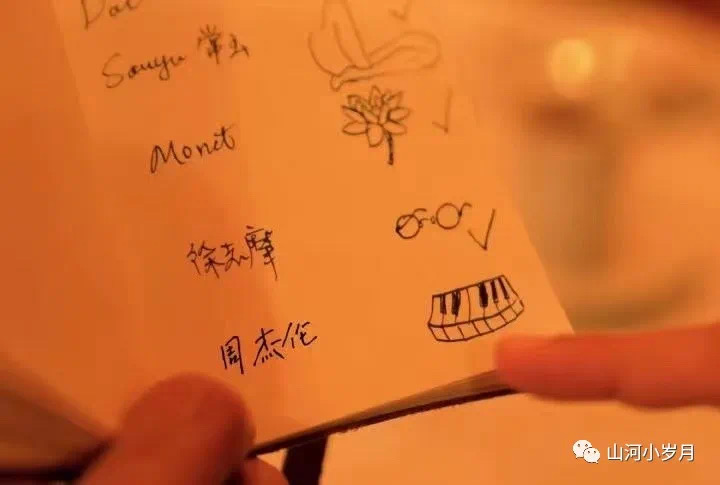 Sanyu 常玉
Monet
徐志摩
周杰伦
山河小岁月